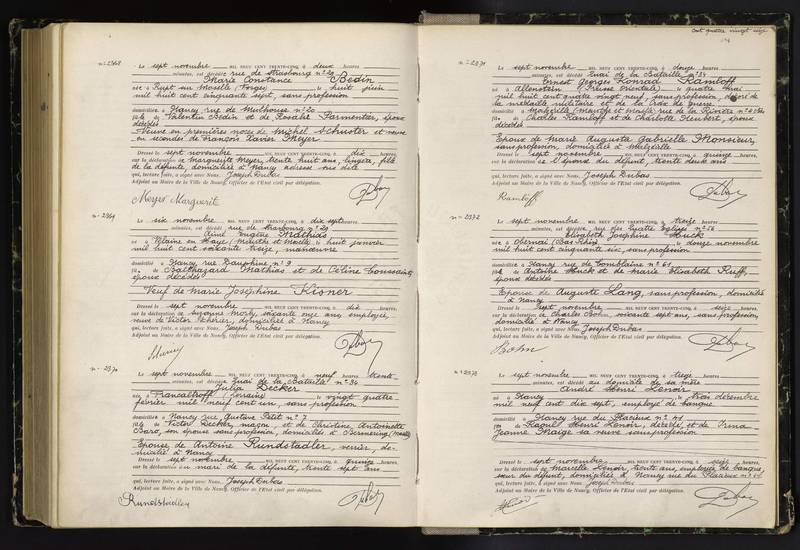 Cent quatre vingt seize
n° 2368
Le sept novembre MIL NEUF CENT TRENTE-CINQ, à deux heures
minutes, est décédé rue de Strasbourg n° 29
Marie Constance Bedin
née à Rupt sur Moselle (Vosges) le huit juin
mil huit cent cinquante sept, sans profession
domiciliée à Nancy rue de Mulhouse n° 20
fille de Valentin Bedin et de Rosalie Parmentier, époux
décédés
Veuve en premières noces de Michel Schuster et veuve
en secondes de François Xavier Meyer
Dressé le sept novembre MIL NEUF CENT TRENTE-CINQ, à dix heures,
sur la déclaration de Marguerite Meyer, trente huit ans, lingère, fille
de la défunte, domiciliée à Nancy adresse sus dite
qui, lecture faite, a signé avec Nous, Joseph Dubas
Adjoint au Maire de la Ville de Nancy, Officier de l'Etat civil par délégation.
Meyer Marguerite
n° 2369
Le six novembre MIL NEUF CENT TRENTE-CINQ, à dix sept heures
minutes, est décédé rue de Strasbourg n° 29
Aimé Eugène Mathias
né à Velaine en Haye (Meurthe et Moselle) le huit janvier
mil huit cent soixante treize, manœuvre
domicilié à Nancy rue Dauphine n° 9
fils de Balthazard Mathias et de Céline Toussaint,
époux décédés
Veuf de Marie Joséphine Kisner
Dressé le sept novembre MIL NEUF CENT TRENTE-CINQ, à dix heures,
sur la déclaration de Suzanne Morly, soixante onze ans, employée,
veuve de Victor Scherier, domiciliée à Nancy
qui, lecture faite, a signé avec Nous, Joseph Dubas
Adjoint au Maire de la Ville de Nancy, Officier de l'Etat civil par délégation.
n° 2370
Le sept novembre MIL NEUF CENT TRENTE-CINQ, à neuf heures trente
minutes, est décédé quai de la Bataille n° 34
Julie Decker
née à Francaltroff (Lorraine) le vingt quatre
février mil neuf cent un, sans profession
domiciliée à Nancy rue Gustave Petit n° 7
fille de Victor Decker, maçon, et de Christine Antoinette
Baro, son épouse sans profession, domiciliés à Bermering (Moselle)
Epouse de Antoine Rundstadler, verrier, do-
micilié à Nancy
Dressé le sept novembre MIL NEUF CENT TRENTE-CINQ, à quinze heures,
sur la déclaration du mari de la défunte, trente sept ans
qui, lecture faite, a signé avec Nous, Joseph Dubas
Adjoint au Maire de la Ville de Nancy, Officier de l'Etat civil par délégation.
Rundstadler
n° 2371
Le sept novembre MIL NEUF CENT TRENTE-CINQ, à douze heures
minutes, est décédé quai de la Bataille n° 34
Ernest Georges Konrad Ramloff
né à Allenstein (Prusse Orientale) le quatre mai
mil huit cent quatre vingt neuf, sans profession, décoré de
la médaille militaire et de la Croix de guerre,
domicilié à Maizières (Moselle) rue de la Rivière
fils de Charles Ramloff et de Charlotte Heubert, époux
décédés
Epoux de Marie Augusta Gabrielle Monsieur,
sans profession, domiciliée à Maizières
Dressé le sept novembre MIL NEUF CENT TRENTE-CINQ, à quinze heures,
sur la déclaration de l'épouse du défunt, trente deux ans
qui, lecture faite, a signé avec Nous, Joseph Dubas
Adjoint au Maire de la Ville de Nancy, Officier de l'Etat civil par délégation.
Ramloff
n° 2372
Le sept novembre MIL NEUF CENT TRENTE-CINQ, à treize heures
minutes, est décédé rue des Quatre Eglises n° 56
Elisabeth Joséphine Huck
née à Obernai (Bas Rhin) le douze novembre
mil huit cent cinquante six, sans profession
domiciliée à Nancy rue de Comblaine n° 61
fille de Antoine Huck et de Marie Elisabeth Ruff,
époux décédés
Epouse de Auguste Lang, sans profession, domicilié
à Nancy
Dressé le sept novembre MIL NEUF CENT TRENTE-CINQ, à seize heures,
sur la déclaration de Charles Bohn, soixante sept ans, sans profession,
domicilié à Nancy
qui, lecture faite, a signé avec Nous, Joseph Dubas
Adjoint au Maire de la Ville de Nancy, Officier de l'Etat civil par délégation.
Bohn
n° 2373
Le sept novembre MIL NEUF CENT TRENTE-CINQ, à treize heures
minutes, est décédé au domicile de sa mère
André Henri Lenoir
né à Nancy le trois décembre
mil neuf cent dix sept, employé de banque
domicilié à Nancy rue du Placieux n° 41
fils de Raoul Henri Lenoir, décédé, et de Irma
Jeanne Maige sa veuve sans profession
Dressé le sept novembre MIL NEUF CENT TRENTE-CINQ, à seize heures,
sur la déclaration de Marcelle Lenoir, trente ans, employée de banque,
sœur du défunt, domiciliée à Nancy rue du Placieux n° 41
qui, lecture faite, a signé avec Nous, Joseph Dubas
Adjoint au Maire de la Ville de Nancy, Officier de l'Etat civil par délégation.